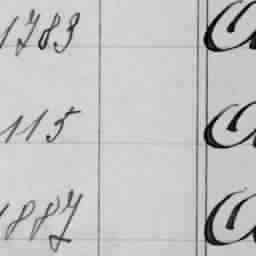 1783
115
1887